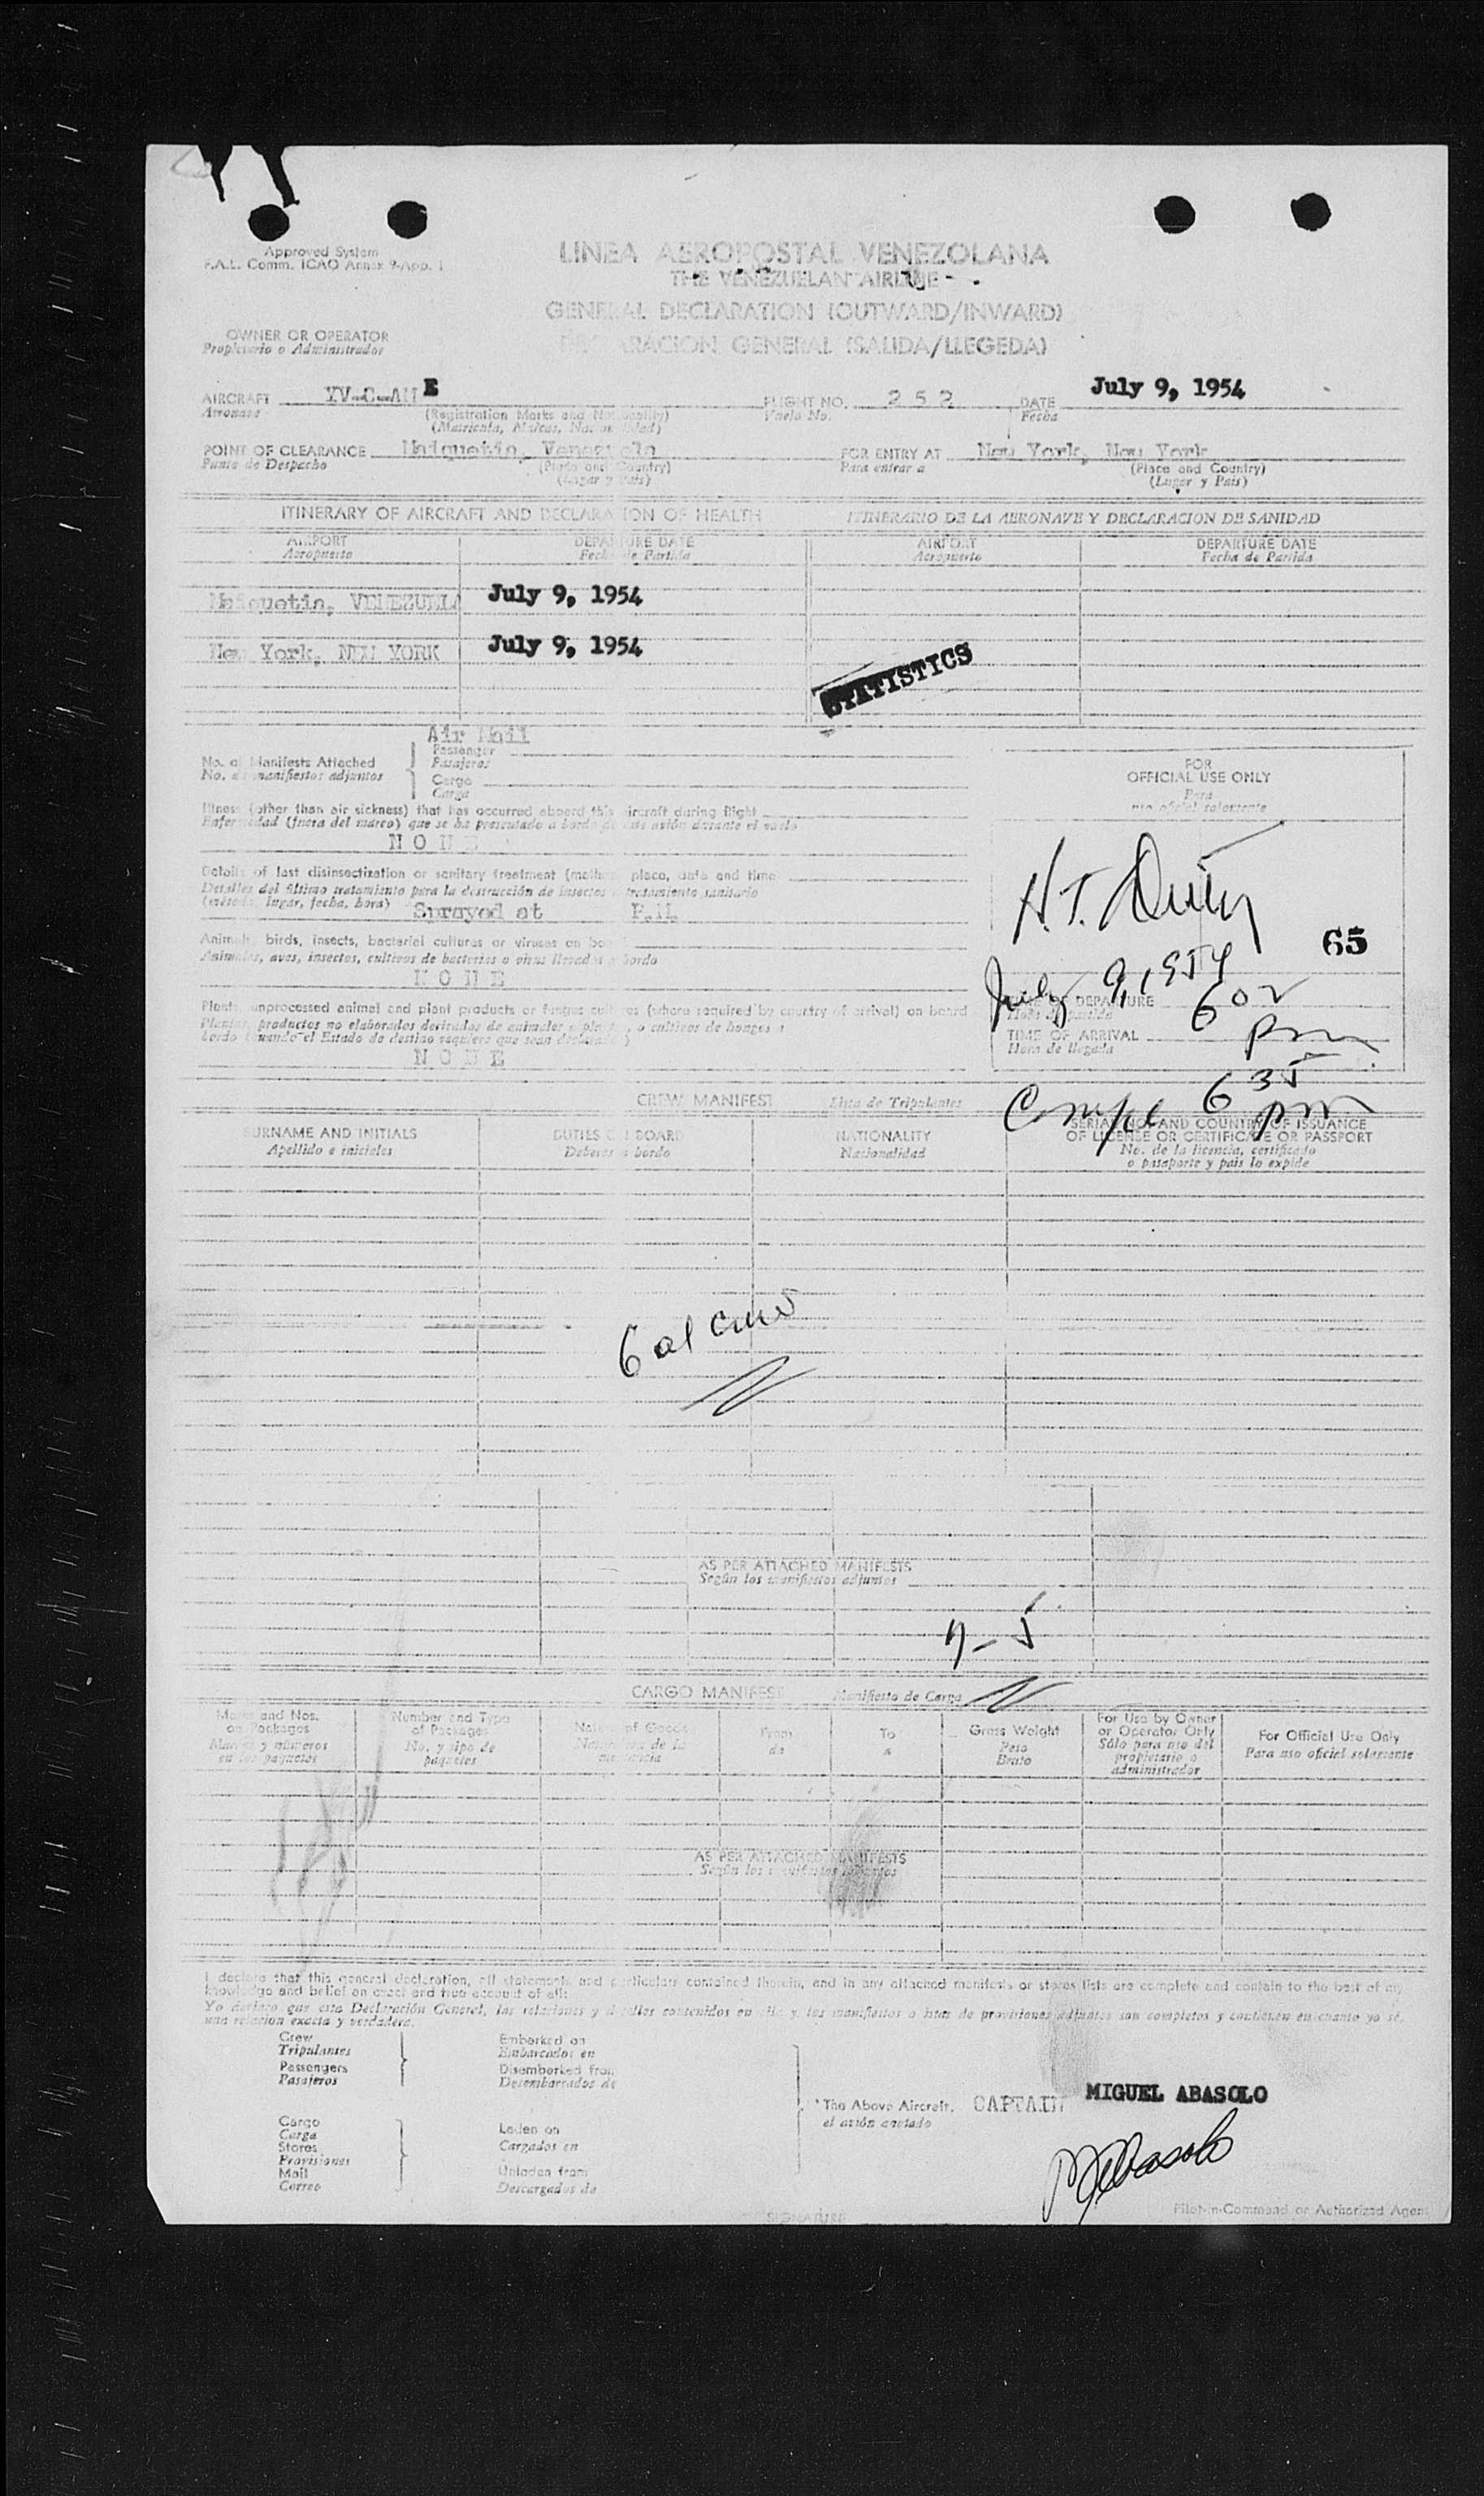 Approved System
F.A.L. Comm. ICAO Annex 9-App. 1
LINEA AEROPOSTAL VENEZOLANA
THE VENEZUELAN AIRLINE
GENERAL DECLARATION (OUTWARD/INWARD)
DECLARACION GENERAL (SALIDA/LLEGEDA)
OWNER OR OPERATOR
Propietario o Administrador
AIRCRAFT YV-C-AM E FLIGHT NO. 252 DATE July 9, 1954
Aeronave (Registration Marks and Nationality) Vuelo No. Fecha
(Matricula, Marcas, Nacionalidad)
POINT OF CLEARANCE Maiquetia, Venezuela FOR ENTRY AT New York, New York
Punto de Despacho (Place and Country) Para entrar a (Place and Country)
(Lugar y Pais) (Lugar y Pais)
ITINERARY OF AIRCRAFT AND DECLARATION OF HEALTH ITINERARIO DE LA AERONAVE Y DECLARACION DE SANIDAD
AIRPORT DEPARTURE DATE AIRPORT DEPARTURE DATE
Aeropuerto Fecha de Partida Aeropuerto Fecha de Partida
Maiquetia, VENEZUELA July 9, 1954
New York, NEW YORK July 9, 1954
STATISTICS
Air Mail
No. of Manifests Attached Passenger
No. de manifiestos adjuntos Pasajeros
Cargo
Carga
FOR
OFFICIAL USE ONLY
Para
uso oficial solamente
Illness (other than air sickness) that has occurred aboard this aircraft during flight
Enfermedad (fuera del mareo) que se ha presentado a bordo de este avión durante el vuelo
NONE
Details of last disinsectization or sanitary treatment (method, place, date and time
Detalles del último tratamiento para la destrucción de insectos o tratamiento sanitario
(método, lugar, fecha, hora) Sprayed at P.M.
Animals, birds, insects, bacterial cultures or viruses on board
Animales, aves, insectos, cultivos de bacterias o virus llevados a bordo
NONE
Plants, unprocessed animal and plant products or fungus cultures (where required by country of arrival) on board
Plantas, productos no elaborados derivados de animales o plantas, o cultivos de hongos a
bordo (cuando el Estado de destino requiere que sean declarados)
NONE
H.T.
65
July 9, 1954
TIME OF DEPARTURE 602
Hora de partida pm
TIME OF ARRIVAL
Hora de llegada
635
pm
CREW MANIFEST Lista de Tripulantes
SURNAME AND INITIALS DUTIES ON BOARD NATIONALITY SERIAL NO. AND COUNTRY OF ISSUANCE
OF LICENSE OR CERTIFICATE OR PASSPORT
Apellido e iniciales Deberes a bordo Nacionalidad No. de la licencia, certificado
o pasaporte y pais lo expide
6 al crew
AS PER ATTACHED MANIFESTS
Según los manifiestos adjuntos
CARGO MANIFEST Manifiesto de Carga
Marks and Nos. on Packages
Marcas y números en los paquetes
Number and Type of Packages
No. y tipo de paquetes
Nature of Goods
Naturaleza de la mercancia
From
de
To
a
Gross Weight
Peso Bruto
For Use by Owner or Operator Only
Sólo para uso del propietario o administrador
For Official Use Only
Para uso oficial solamente
AS PER ATTACHED MANIFESTS
Según los manifiestos adjuntos
I declare that this general declaration, all statements and particulars contained therein, and in any attached manifests or stores lists are complete and contain to the best of my
knowledge and belief an exact and true account of all:
Yo declaro que esta Declaración General, las relaciones y detalles contenidos en ella y los manifiestos o listas de provisiones adjuntos son completos y contienen en cuanto yo sé,
una relacion exacta y verdadera.
Crew Embarked on
Tripulantes Embarcados en
Passengers Disembarked from
Pasajeros Desembarcados de
The Above Aircraft. CAPTAIN MIGUEL ABASOLO
el avión anotado
Cargo Laden on
Carga Cargados en
Stores
Provisiones
Mail Unladen from
Correo Descargados de
MAbasolo
SIGNATURE Pilot-in-Command or Authorized Agent